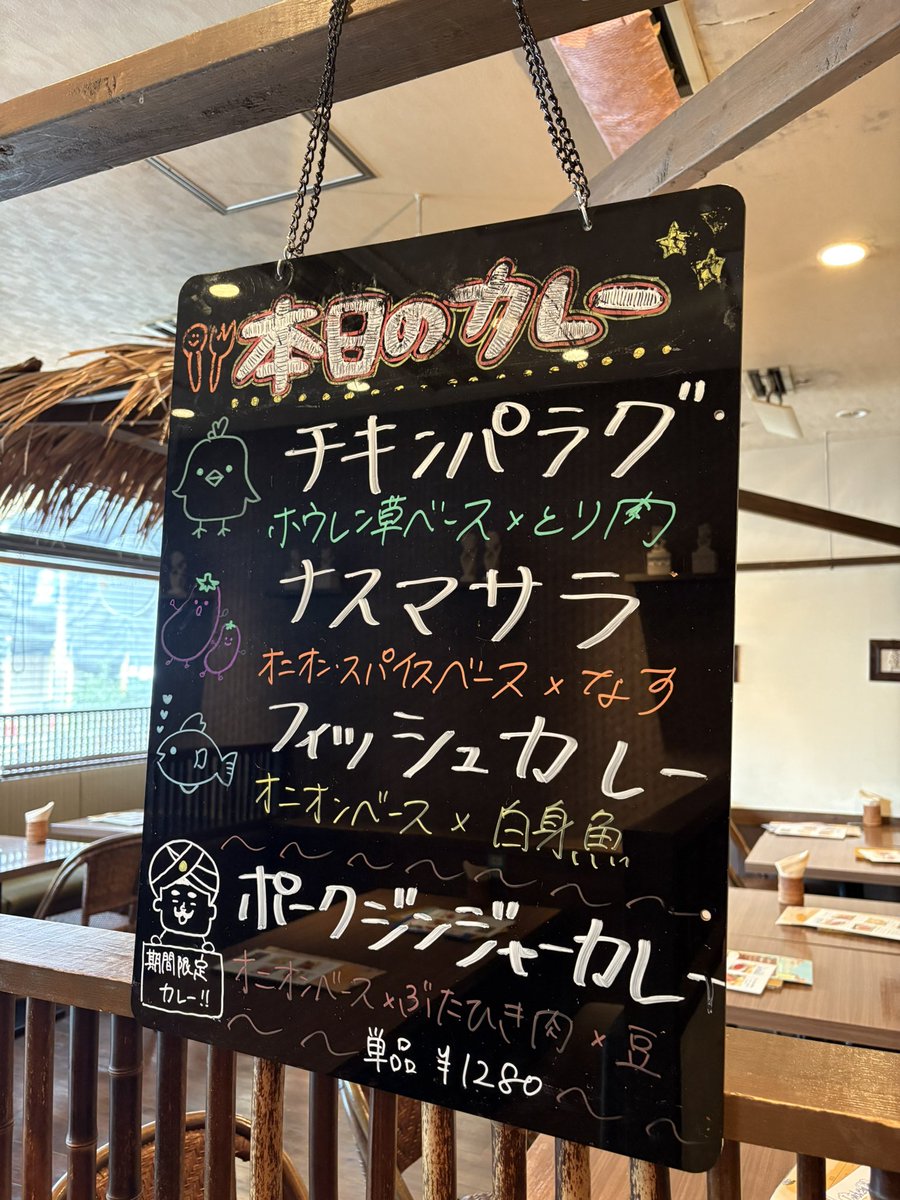 本日のカレー
チキンパラグ
ホウレン草ベース×とり肉
ナスマサラ
オニオン・スパイスベース × なす
フィッシュカレー
オニオンベース × 白身魚
ポークジンジャーカレー
オニオンベース×ぶたひき肉×豆
期間限定
カレー!!
単品 ¥1280